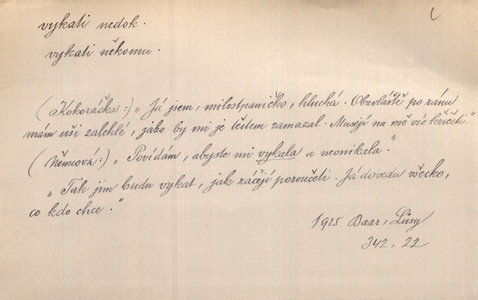 vykati nedok.
vykati někomu.
(Kokoráčka:) „Já jsem, milostpaničko, hluchá. Obzvláště po ránu
mám uši zalehlé, jako by mi je těstem zamazal. Musejí na mě víc křičeti."
(Němcová:) „Povídám, abyste mi vykala a neonikala."
„Tak jim budu vykat, jak ráčejí poroučeti. Já dovedu všecko,
co kdo chce."
1915 Baar, Lůsy
342, 22